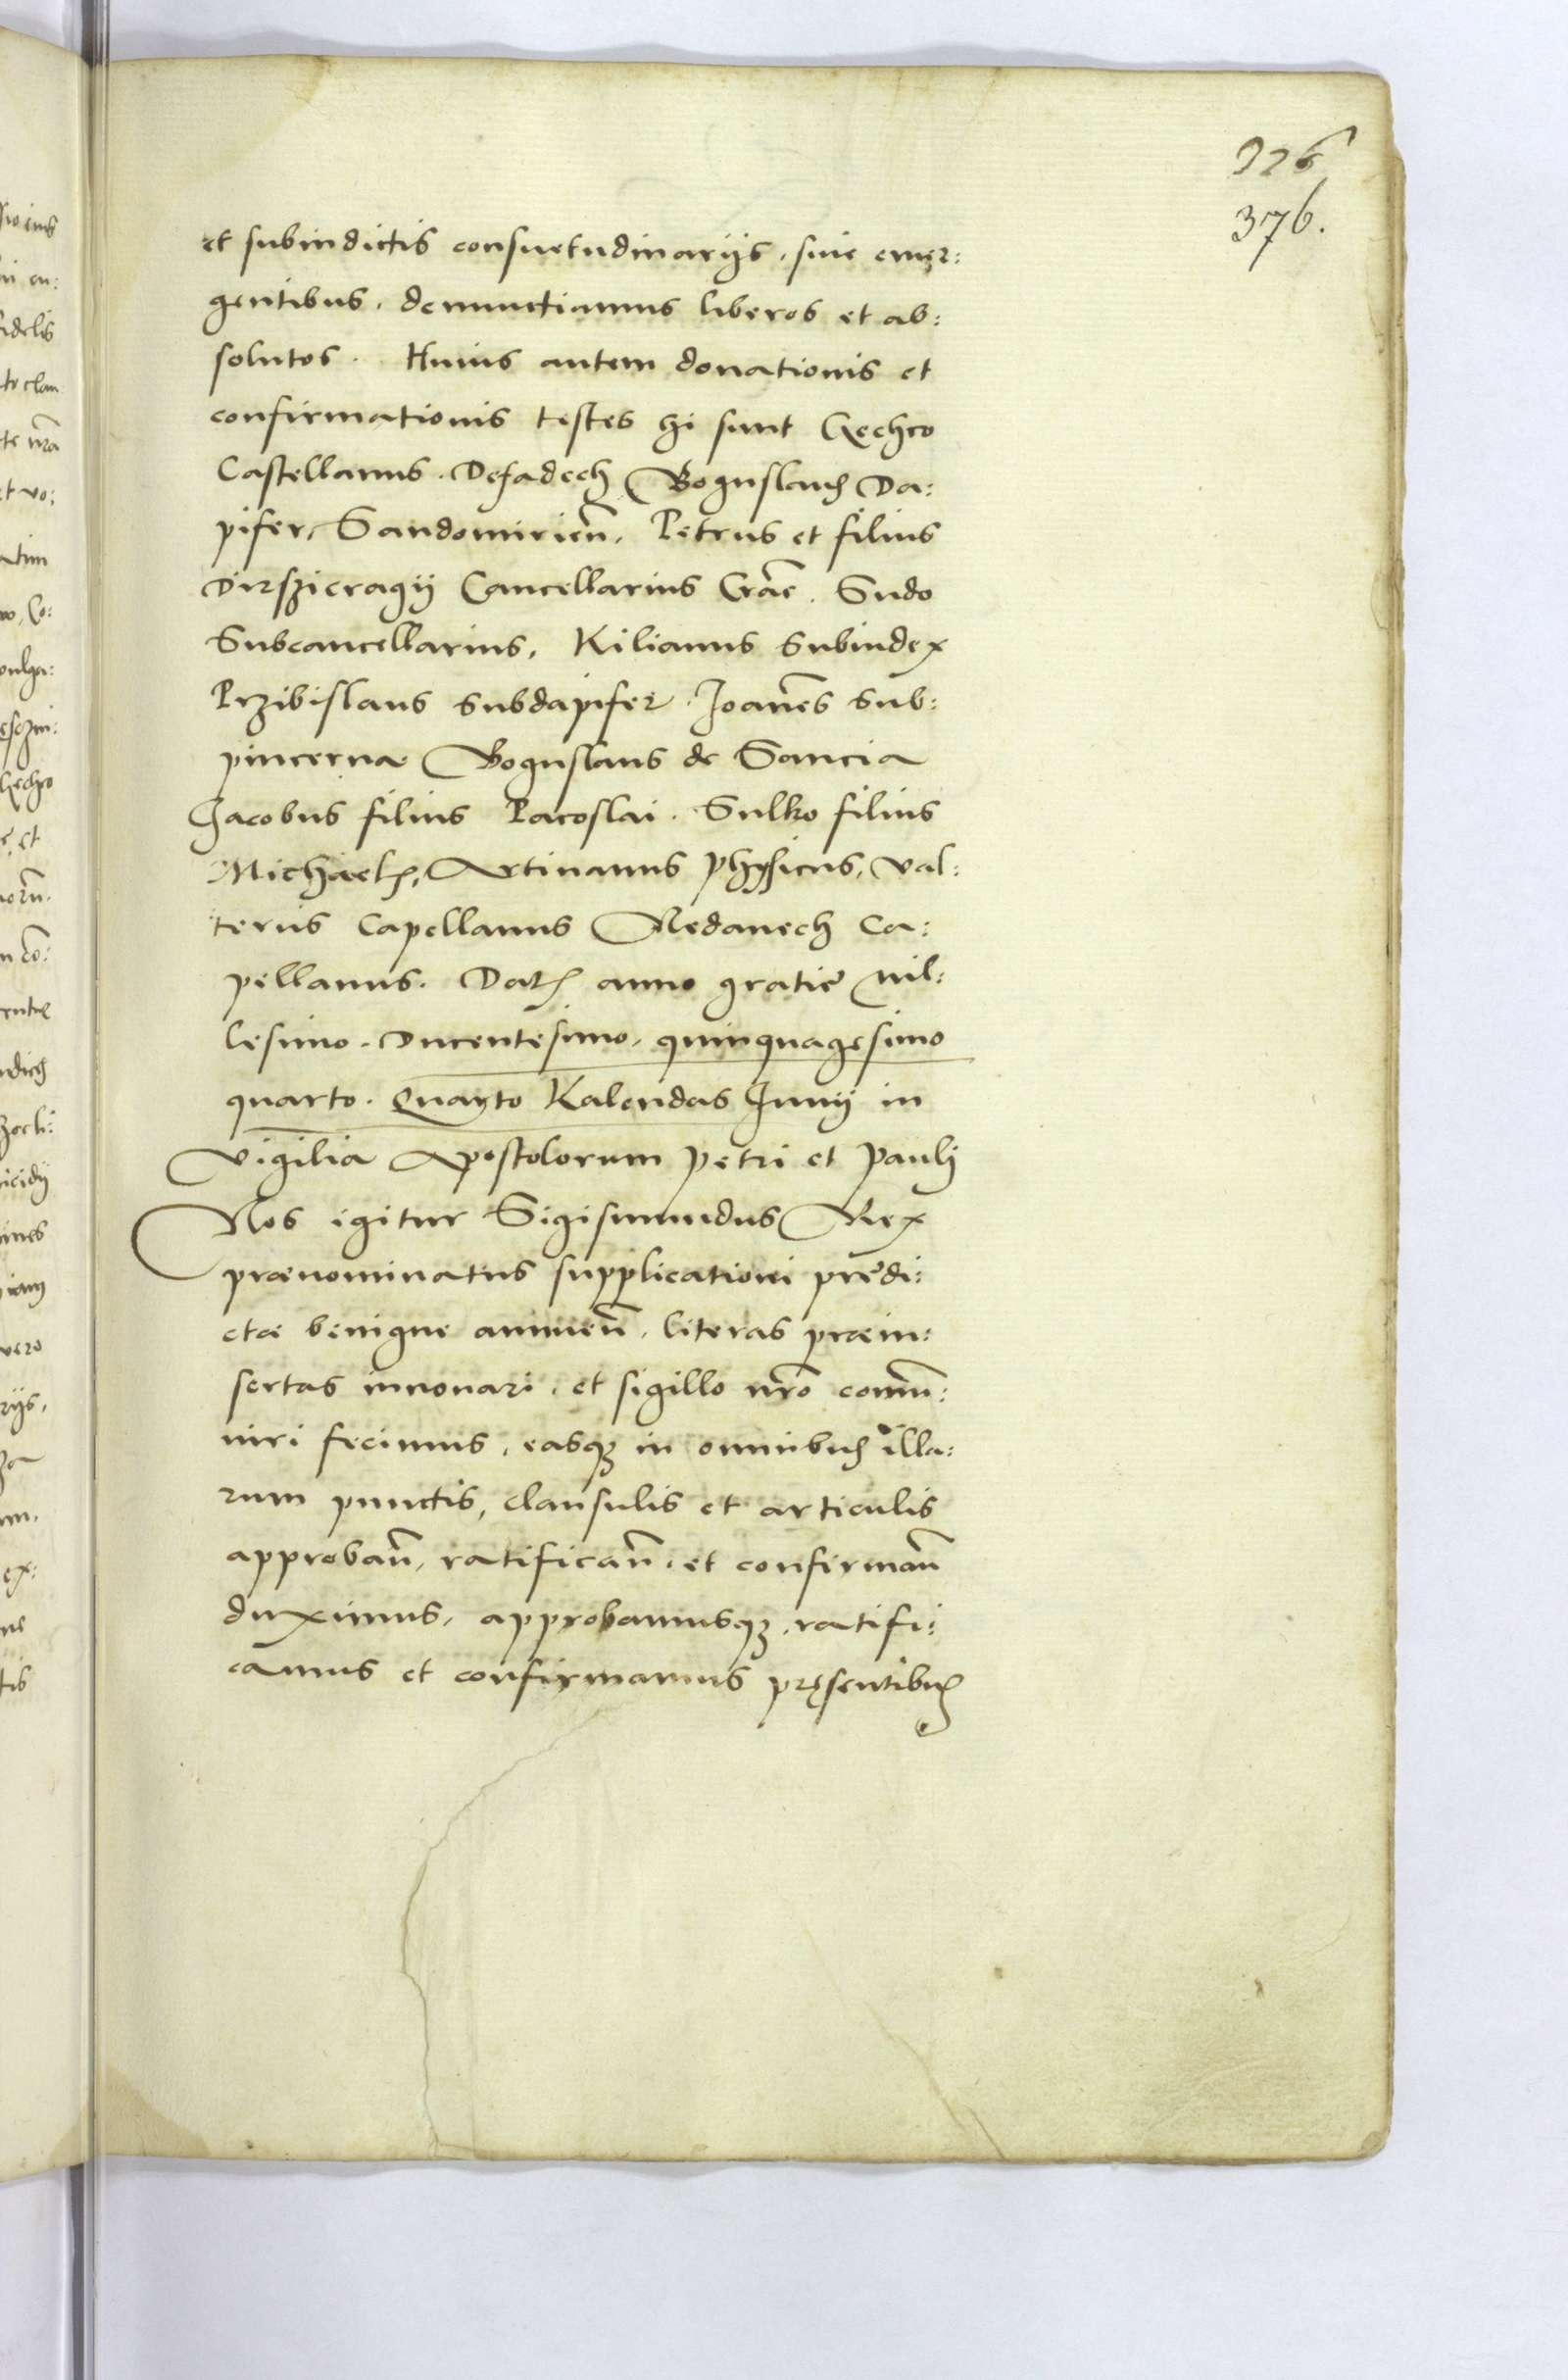 326
376.
et subindictis consuetudinarijs, siue emer:
gentibus, denunctiamus liberos et ab:
solutos. Huius autem donationis et
confirmationis testes hi sunt Gechco
Castellanus. Desadech Boguslaus Da:
pifer, Sandomirien̄, Petrus et filius
Dirszicragij Cancellarius Crāc. Sudo
Subcancellarius, Kilianus Subiudex
Przibislaus Subdapifer. Joanēs Sub:
pincerna Boguslaus de Sancia
Jacobus filius Pacoslai. Sulko filius
Michaelis, Artinanus phisicus, Val:
terus Capellanus Nedanech Ca:
pellanus. Datum anno gratie mil:
lesimo. Ducentesimo, quinquagesimo
quarto. Quarto Kalendas Junij in
Vigilia Apostolorum Petri et Pauli
Nos igitur Sigismundus Rex
prænominatus supplicationi predi:
ctæ benigne annuen̄, literas præin:
sertas innouari, et sigillo nr̄o commu:
niri fecimus, easq3 in omnibus illa:
rum punctis, clausulis et articulis
approban̄, ratifican̄, et confirman̄
duximus, approbamusq3, ratifi:
camus et confirmamus pręsentibus